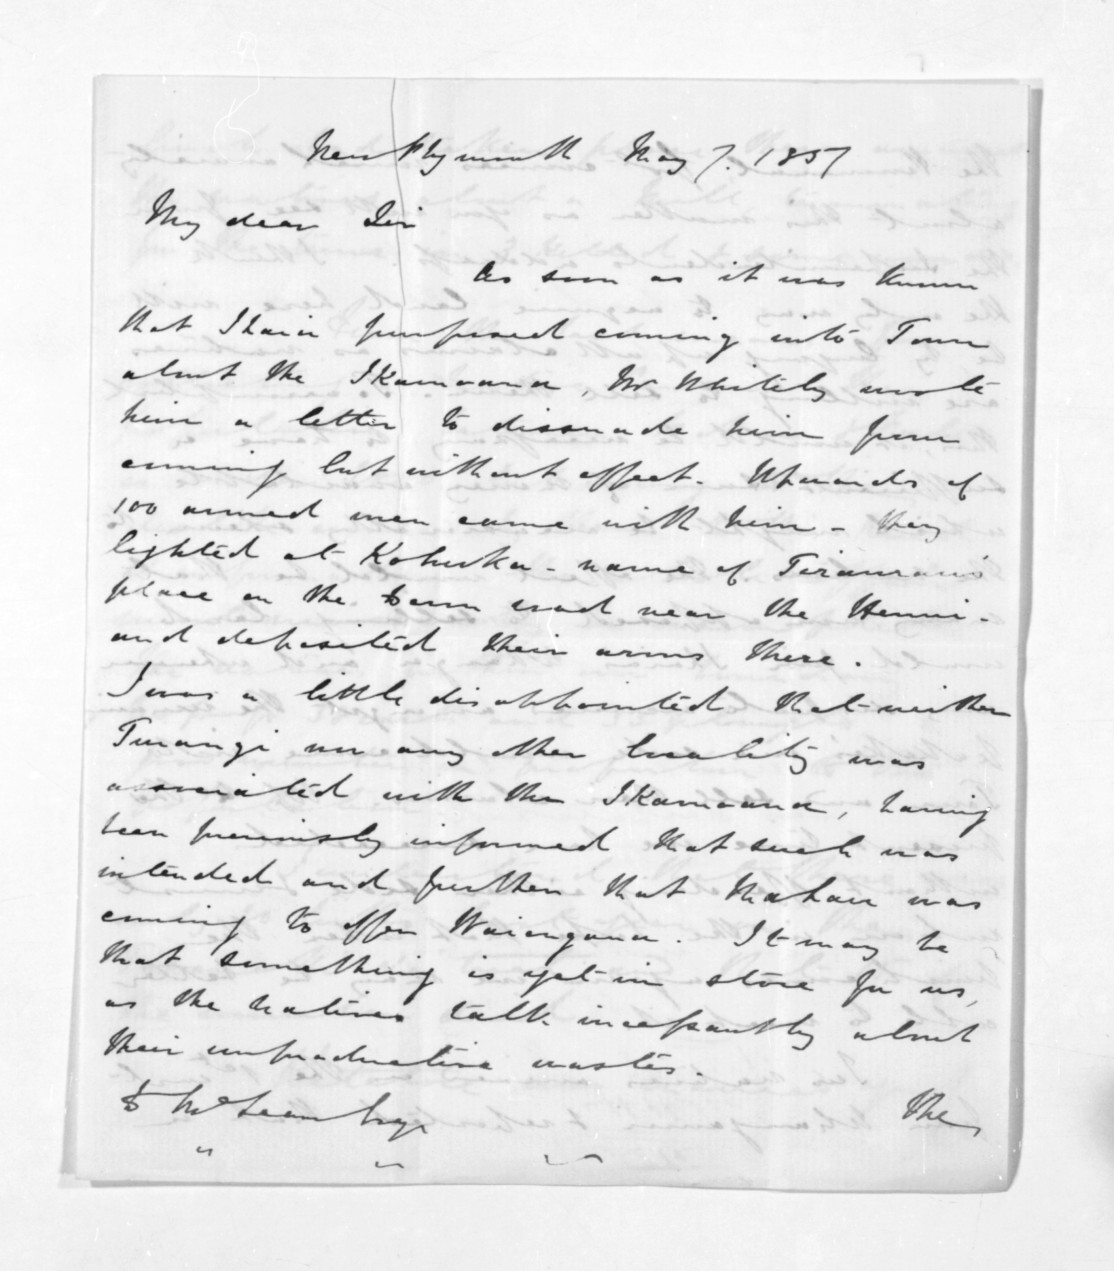 New Plymouth May 7. 1857
My dear Sir
As soon as it was known
that Ihaia purposed coming into Town
about the Ikamoana, Mr Whitely wrote
him a letter to dissuade him from
coming but without effect. Upwards of
100 armed men came with him - they
lighted at - name of
place on the Devon road near the Henui -
and deposited their arms there.
I was a little disappointed that neither
Turangi nor any other locality was
associated with the Ikamoana, having
been previously informed that such was
intended and further that Mahau was
coming to offer Waiongana. It may be
that something is yet in store for us,
as the natives talk incessantly about
their unproductive wastes.
D McLean Esqr
The